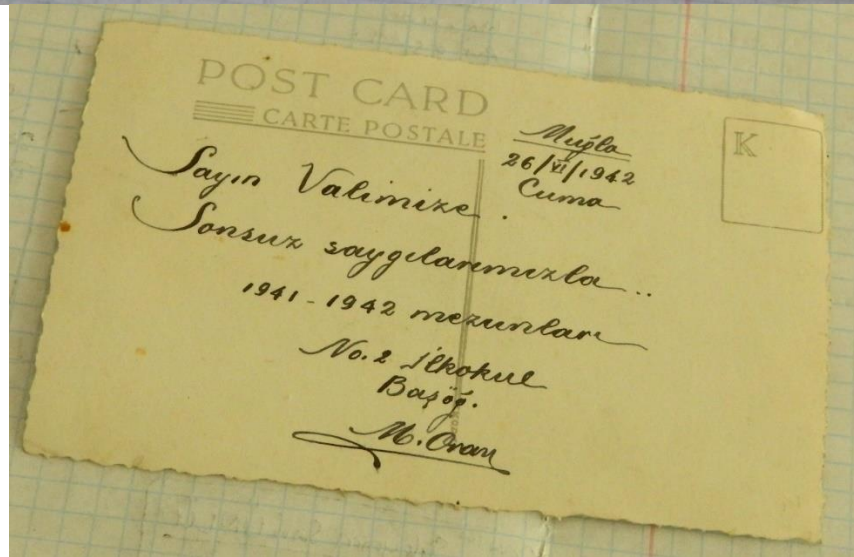 POST CARD
CARTE POSTALE
Muğla
26/VI/1942
Cuma
K
Sayın Valimize.
Sonsuz saygılarımızla..
1941-1942 mezunları
No. 2 İlkokul
Başöğ.
M. Oran